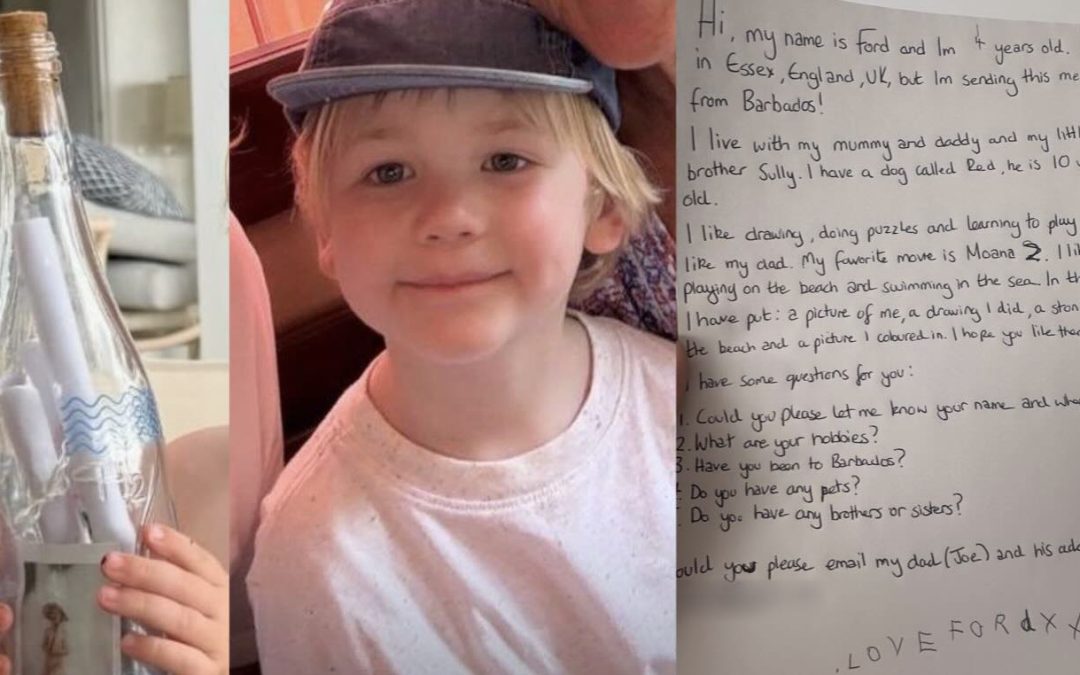 Hi, my name is Ford and Im 4 years old.
in Essex, England, UK, but Im sending this me
from Barbados!
I live with my mummy and daddy and my littl
brother Sully. I have a dog called Red, he is 10 y
old.
I like drawing, doing puzzles and learning to play
like my dad. My favorite movie is Moana 2. I li
playing on the beach and swimming in the sea. In th
I have put: a picture of me, a drawing I did, a ston
the beach and a picture I coloured in. I hope you like the
have some questions for you:
1. Could you please let me know your name and whe
2. What are your hobbies?
3. Have you been to Barbados?
Do you have any pets?
Do you have any brothers or sisters?
ould you please email my dad (Joe) and his add
LOVE FORd X X